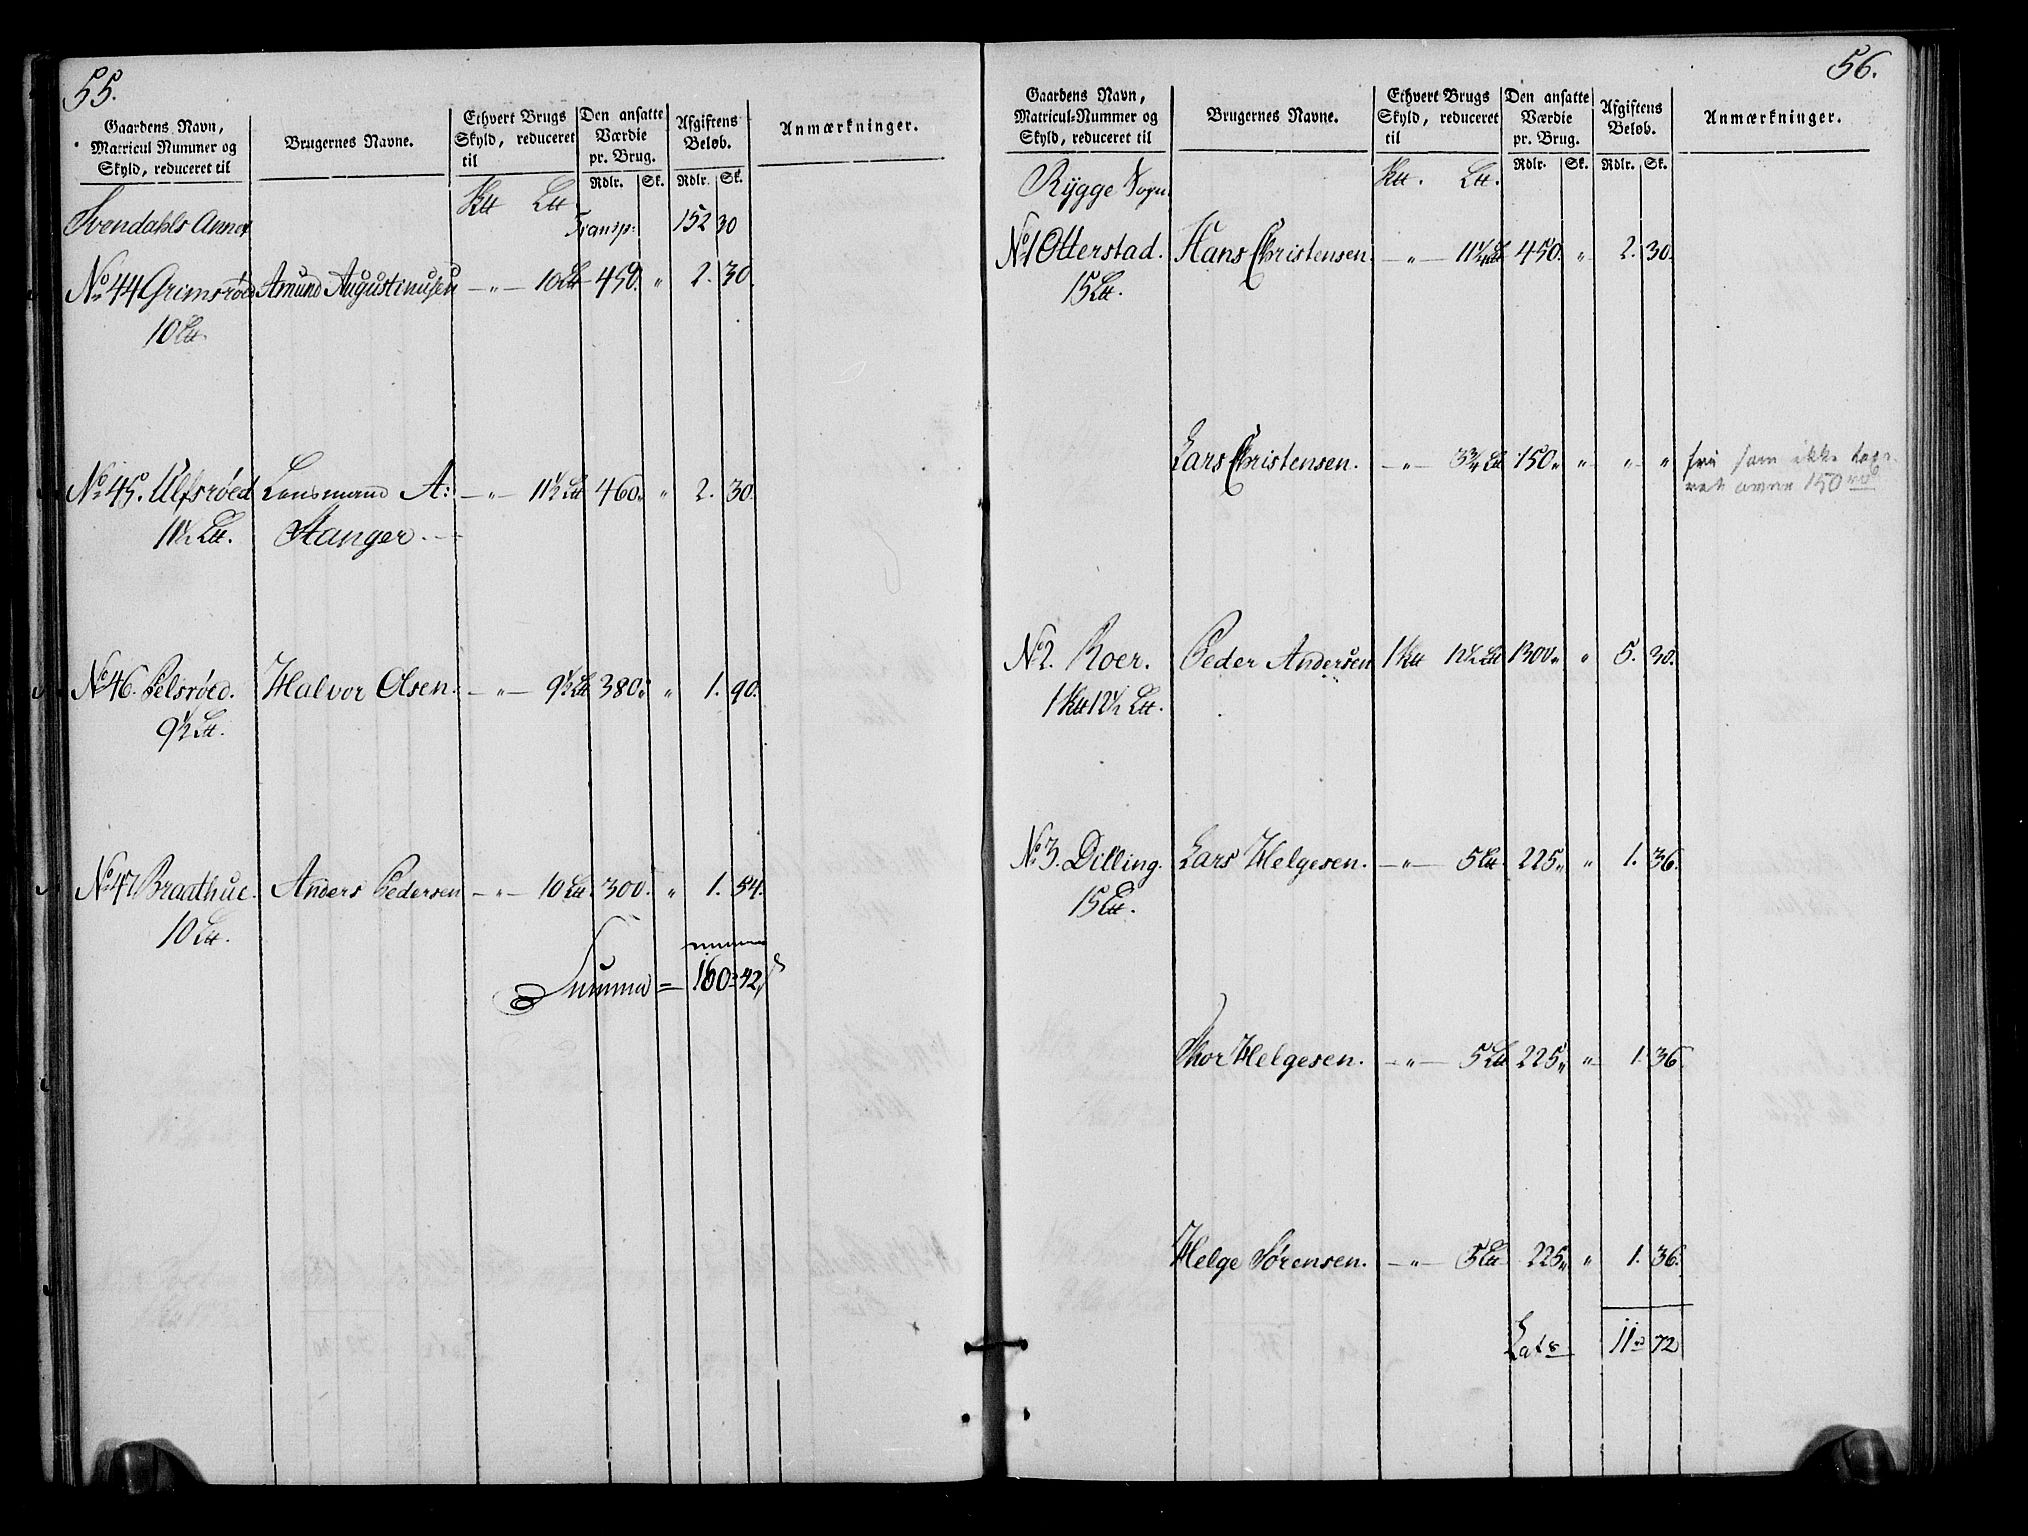 55.
Gaardens Navn, Matricul Nummer og Skyld, reduceret til | Brugernes Navne. | Ethvert Brugs Skyld, reduceret til | Den ansatte Værdie pr. Brug. | Afgiftens Beløb. | Anmærkninger.
Rdlr. Sk. Rdlr. Sk.
Svendahls Annex
Transp: 152 30
No 44 Grimsrøed Amund Augustinusen — " — 10 Ltt 450. " 2. 30.
10 Ltt.
No 45. Ulfsrøed Lensmand A: — " — 11½ Ltt 460. " 2. 30.
11½ Ltt. Stanger. —
No 46. Pelsrøed. Halvor Olsen. — " — 9½ Ltt 380. " 1. 90.
9½ Ltt.
No 47. Braathue. Anders Pedersen — " — 10 Ltt. 300. " 1. 54.
10 Ltt.
Summa = 160 " 42
56.
Gaardens Navn, Matricul-Nummer og Skyld, reduceret til | Brugernes Navne. | Ethvert Brugs Skyld, reduceret til | Den ansatte Værdie pr. Brug. | Afgiftens Beløb. | Anmærkninger.
Rdlr. Sk. Rdlr. Sk.
Rÿgge Sogn
No 1 Otterstad. Hans Christensen — " — 11¼ Ltt 450. " 2. 30.
15 Ltt.
Lars Christensen. — " — 3¾ Ltt 150. " " " fri som ikke
150
No 2. Roer. Peder Andersen 1 Ktt 12½ Ltt 1300. " 5. 30.
1 Ktt 12½ Ltt.
No 3. Dilling. Lars Helgesen. — " — 5 Ltt. 225. " 1. 36.
15 Ltt.
Thor Helgesen. — " — 5 Ltt 225. " 1. 36.
Helge Sørensen. — " — 5 Ltt 225. " 1. 36.
Lats 11 72